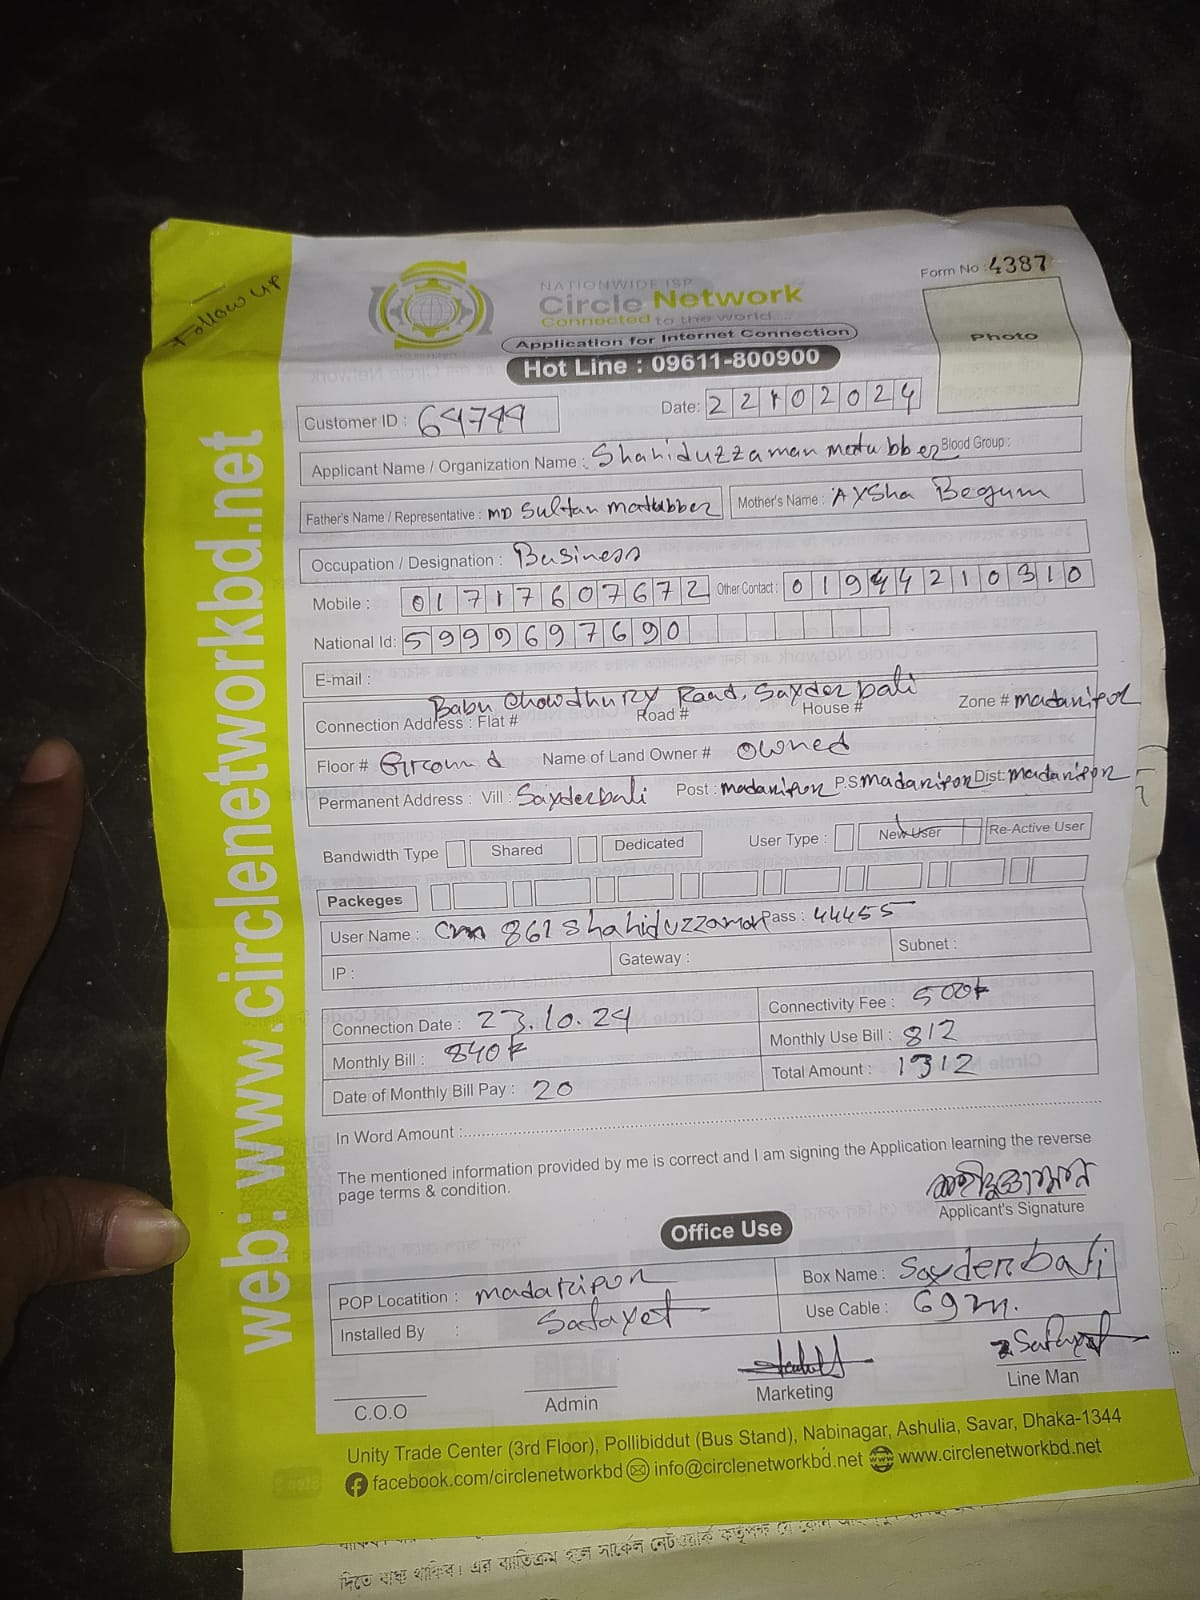 Follow up
NATIONWIDE ISP
Circle Network
Connected to the world....
Application for Internet Connection
Hot Line : 09611-800900
Form No : 4387
Photo
web: www.circlenetworkbd.net
Customer ID : 64744
Date: 22102024
Applicant Name / Organization Name : Shahiduzzaman matubber Blood Group :
Father's Name / Representative : MD Sultan matubber Mother's Name : Aysha Begum
Occupation / Designation : Business
Mobile : 01717607672 Other Contact : 01944210310
National Id: 5999697690
E-mail :
Babu Chowdhury Road, Sayderbali
Connection Address : Flat # Road # House # Zone # madaripur
Floor # Ground Name of Land Owner # owned
Permanent Address : Vill : Sayderbali Post : madaripur P.S madaripur Dist: madaripur
Bandwidth Type Shared Dedicated User Type : New User Re-Active User
Packeges
User Name : 861 Shahiduzzaman Pass : 44455
IP : Gateway : Subnet :
Connection Date : 23.10.24 Connectivity Fee : 500৳
Monthly Bill : 840৳ Monthly Use Bill : 812
Date of Monthly Bill Pay : 20 Total Amount : 1312
In Word Amount :
The mentioned information provided by me is correct and I am signing the Application learning the reverse
page terms & condition.
Applicant's Signature
Office Use
POP Locatition : madaripur Box Name : Sayderbali
Installed By : Safayet Use Cable : 69m.
Safayet
C.O.O Admin Marketing Line Man
Unity Trade Center (3rd Floor), Pollibiddut (Bus Stand), Nabinagar, Ashulia, Savar, Dhaka-1344
facebook.com/circlenetworkbd info@circlenetworkbd.net www.circlenetworkbd.net
দিতে বাধ্য থাকিব। এর ব্যতিক্রম হলে সার্কেল নেটওয়ার্ক কর্তৃপক্ষ যে কোন